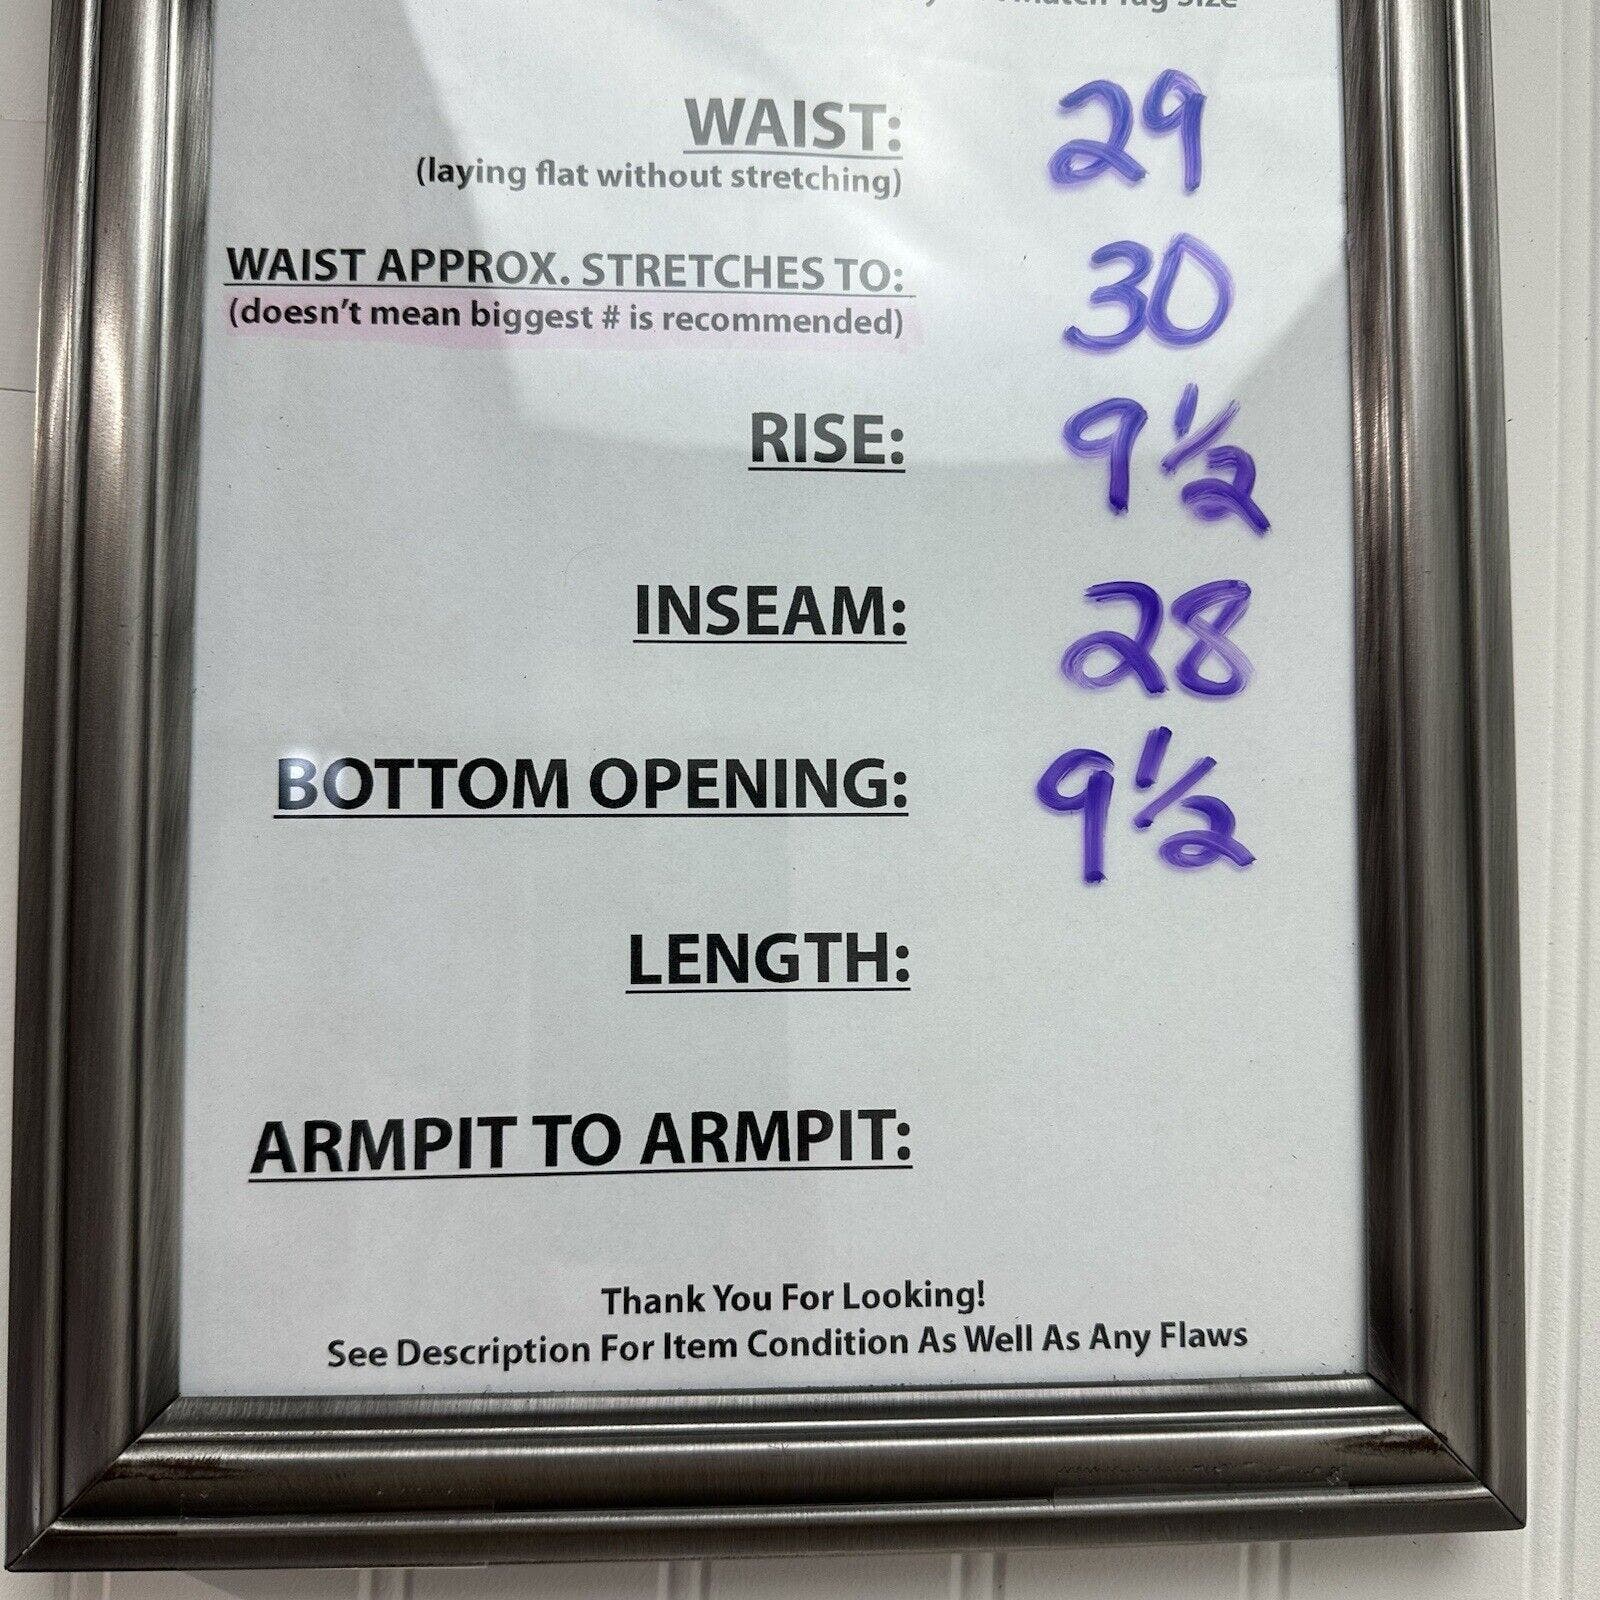 Tag Size
WAIST: 29
(laying flat without stretching)
WAIST APPROX. STRETCHES TO: 30
(doesn't mean biggest # is recommended)
RISE: 9 1/2
INSEAM: 28
BOTTOM OPENING: 9 1/2
LENGTH:
ARMPIT TO ARMPIT:
Thank You For Looking!
See Description For Item Condition As Well As Any Flaws